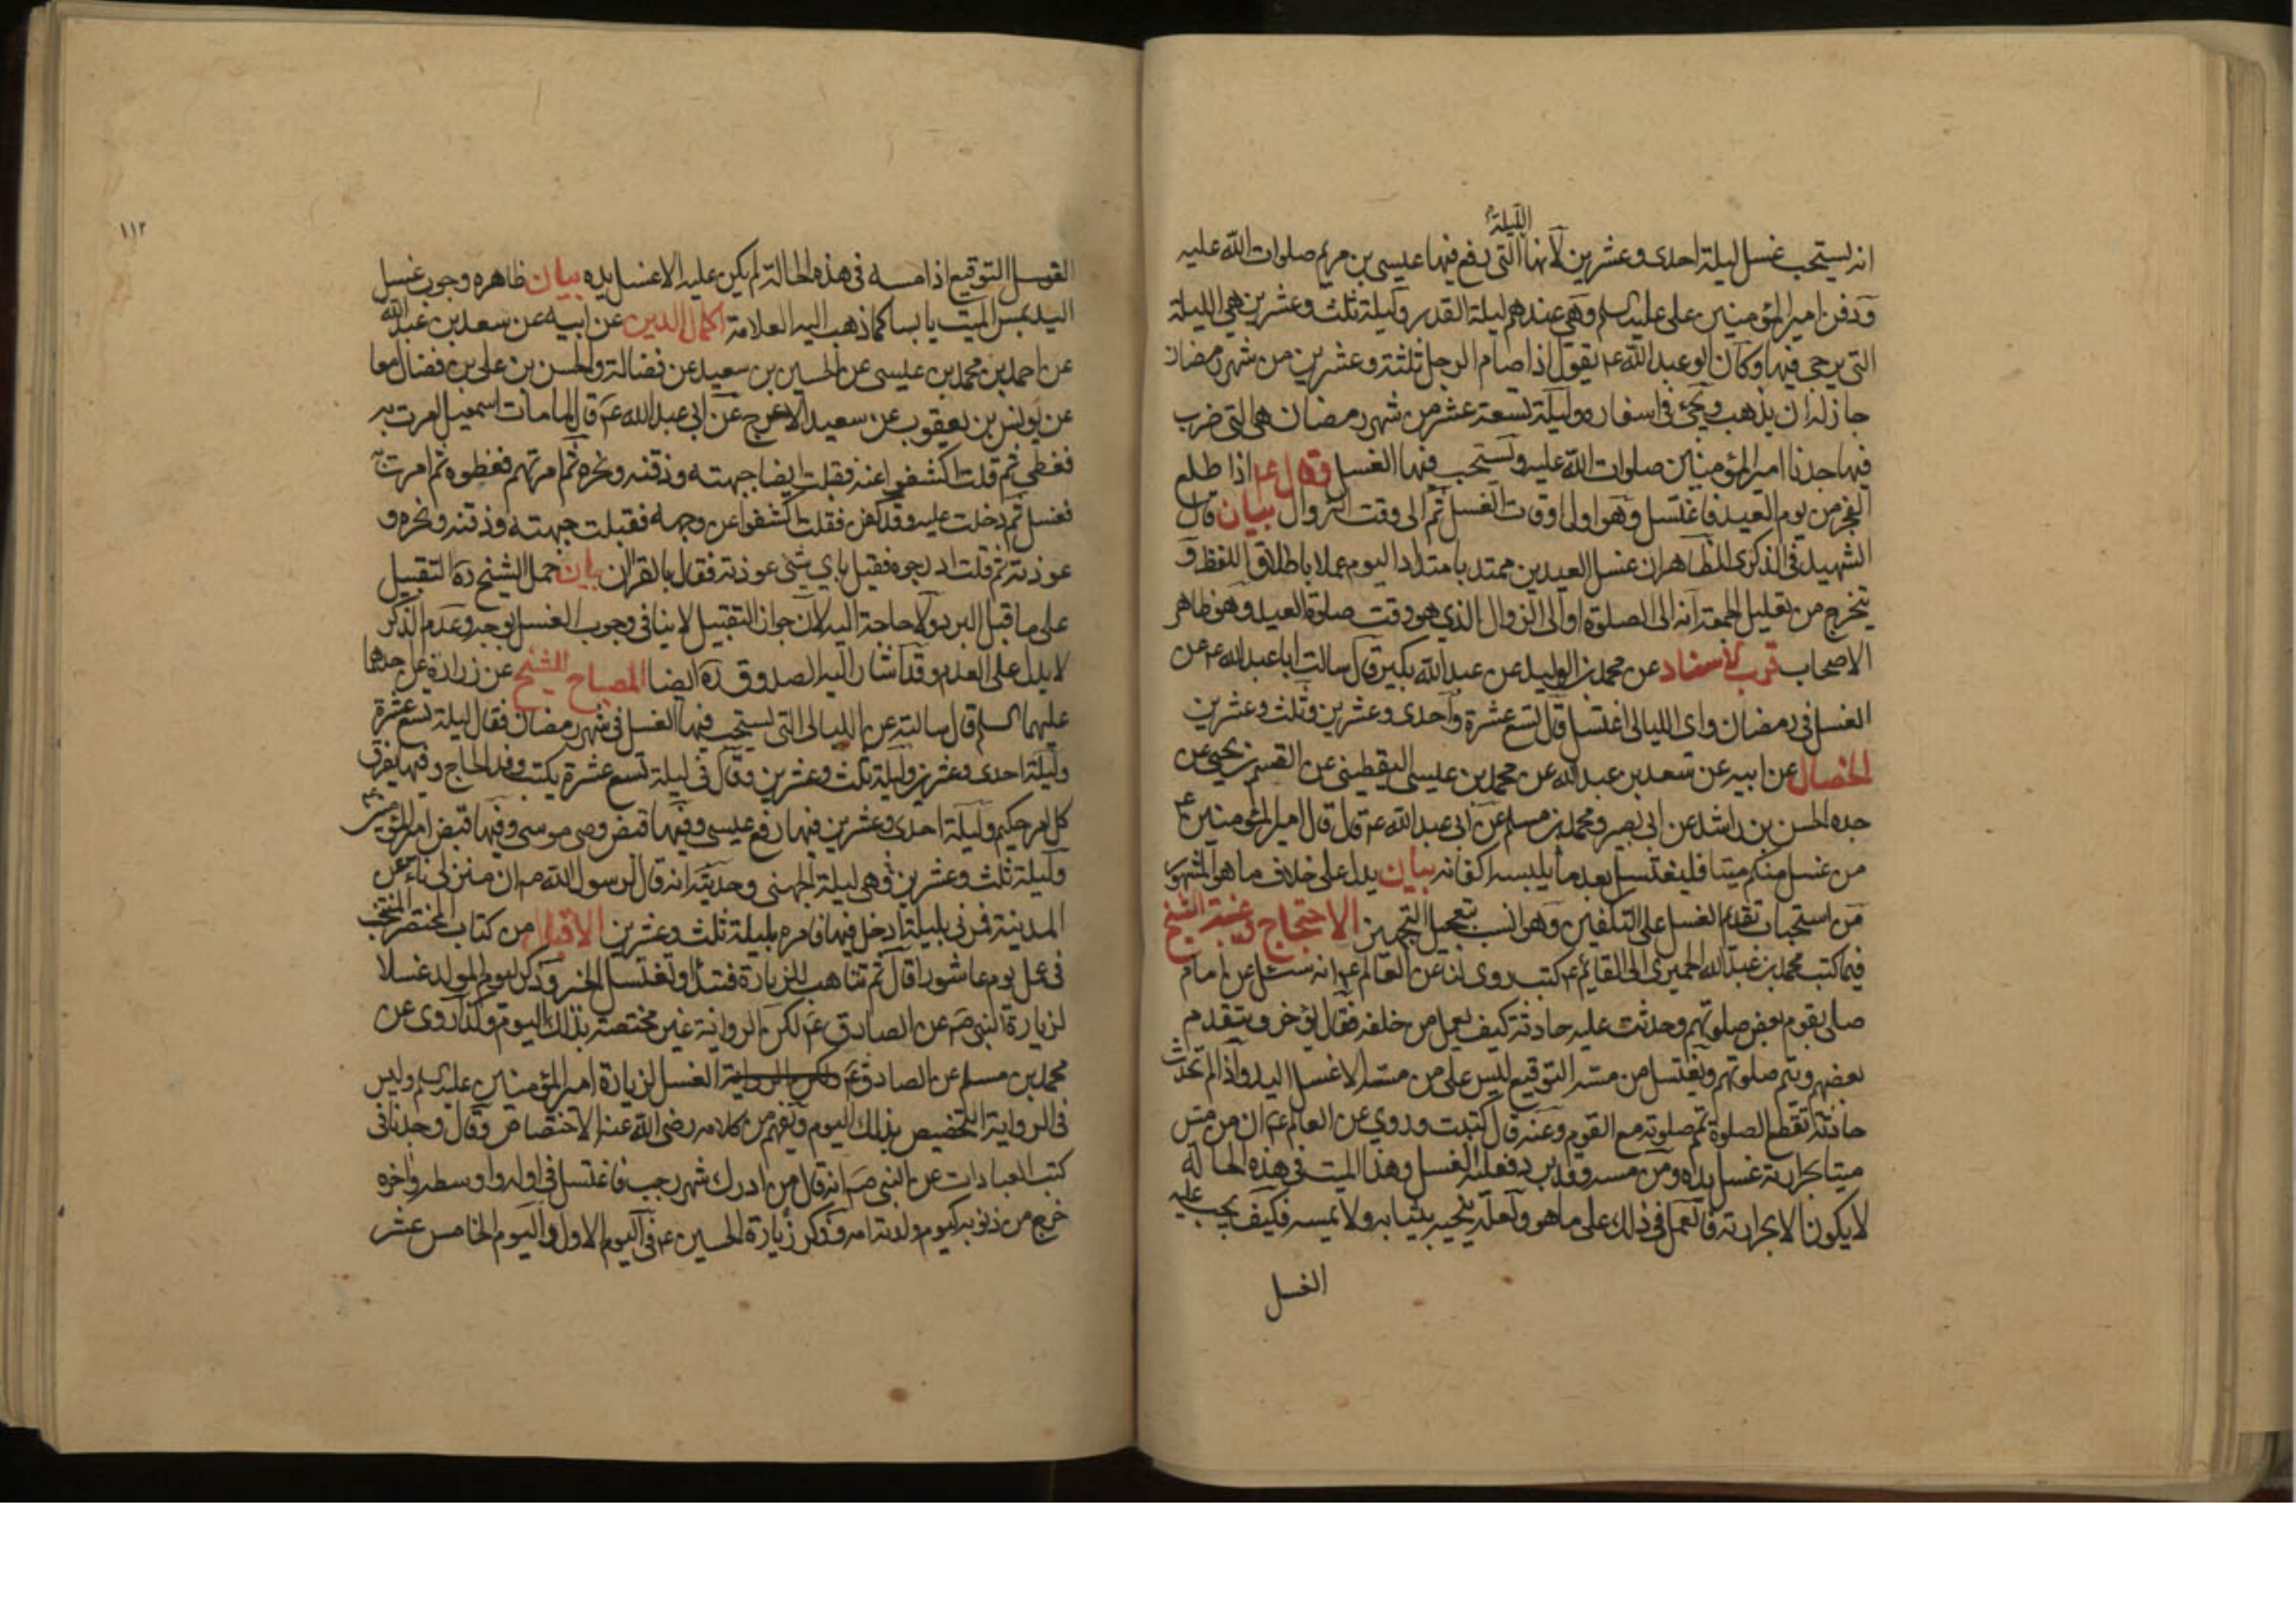 الليلة
انه يستحب غسل ليلة احدى وعشرين لانها التى رفع فيها عيسى بن مريم صلوات الله عليه
ودفن امير المؤمنين على عليه السلم وهى عندهم ليلة القدر وليلة ثلث وعشرين هى الليلة
التى يرجى فيها وكان ابو عبد الله ع يقول اذا صام الرجل ثلثة وعشرين من شهر رمضان
جاز له ان يذهب ويجئ فى اسفاره وليلة تسعة عشر من شهر رمضان هى التى ضرب
فيها جدنا امير المؤمنين صلوات الله عليه ويستحب فيها الغسل وقال ع اذا طلع
الفجر من يوم العيد فاغتسل وهو اول اوقات الغسل ثم الى وقت الزوال بيان قال
الشهيد فى الذكرى الظاهر ان غسل العيدين ممتد بامتداد اليوم عملا باطلاق اللفظ و
يتخرج من تعليل الجمعة انه الى الصلوة او الى الزوال الذى هو وقت صلوة العيد وهو ظاهر
الاصحاب قرب الاسناد عن محمد بن الوليد عن عبد الله بكير قال سالت ابا عبد الله ع عن
الغسل فى رمضان واى الليالى اغتسل قال تسع عشرة واحدى وعشرين وثلث وعشرين
الخصال عن ابيه عن سعد بن عبد الله عن محمد بن عيسى اليقطينى عن القسم بن يحيى عن
جده الحسن بن راشد عن ابى بصير ومحمد بن مسلم عن ابى عبد الله ع قال قال امير المؤمنين ع
من غسل منكم ميتا فليغتسل بعد ما يلبسه اكفانه بيان يدل على خلاف ما هو المشهور
من استحباب تقديم الغسل على التكفين وهو انسب بتعجيل التجهيز الاحتجاج وغيبة الشيخ
فيما كتب محمد بن عبد الله الحميرى الى القائم ع كتب روى لنا عن العالم ع انه سئل عن امام
صلى بقوم بعض صلوتهم وحدثت عليه حادثة كيف يعمل من خلفه فقال يؤخر ويتقدم
بعضهم ويتم صلوتهم ويغتسل من مسه التوقيع ليس على من مسه الا غسل اليد واذا لم تحدث
حادثة تقطع الصلوة تمم صلوته مع القوم وعنه قال كتبت وروى عن العالم ع ان من مس
ميتا بحرارته غسل يده ومن مسه وقد برد فعليه الغسل وهذا الميت فى هذه الحالة
لا يكون الا بحرارته فالعمل فى ذلك على ما هو ولعله ينحيه بثيابه ولا يمسه فكيف يجب عليه
الغسل
١١٢
الغسل التوقيع اذا مسه فى هذه الحالة لم يكن عليه الا غسل يده بيان ظاهره وجوب غسل
اليد بمس الميت يابسا كما ذهب اليه العلامة اكمال الدين عن ابيه عن سعد بن عبد الله
عن احمد بن محمد بن عيسى عن الحسين بن سعيد عن فضالة والحسن بن على بن فضال معا
عن يونس بن يعقوب عن سعيد الاعرج عن ابى عبد الله ع قال لما مات اسمعيل امرت به
فغطى ثم قلت اكشفوا عنه فقبلت ايضا جبهته وذقنه ونحره ثم امرتهم فغطوه ثم امرت به
فغسل ثم دخلت عليه وقد كفن فقلت اكشفوا عن وجهه فقبلت جبهته وذقنه ونحره و
عوذته ثم قلت ادرجوه فقيل باى شئ عوذته فقال بالقران بيان حمل الشيخ ره التقبيل
على ما قبل البرد ولا حاجة اليه لان جواز التقبيل لا ينافى وجوب الغسل بوجه وعدم الذكر
لا يدل على العدم وقد اشار اليه الصدوق ره ايضا المصباح للشيخ عن زرارة عن احدهما
عليهما السلم قال سالته عن الليالى التى يستحب فيها الغسل فى شهر رمضان فقال ليلة تسع عشرة
وليلة احدى وعشرين وليلة ثلث وعشرين وقال فى ليلة تسع عشرة يكتب وفد الحاج وفيها يفرق
كل امر حكيم وليلة احدى وعشرين فيها رفع عيسى وفيها قبض وصى موسى وفيها قبض امير المؤمنين ع
وليلة ثلث وعشرين وهى ليلة الجهنى وحديثه انه قال لرسول الله ص ان منزلى ناء عن
المدينة فمرنى بليلة ادخل فيها فامره بليلة ثلث وعشرين الاقبال من كتاب المختصر المنتخب
فى عمل يوم عاشورا قال ثم تتاهب للزيارة فتبدأ وتغتسل الخبر وذكر ليوم المولد غسلا
لزيارة النبى ص عن الصادق ع لكن الرواية غير مختصة بذلك اليوم وكذا روى عن
محمد بن مسلم عن الصادق ع لكن الرواية الغسل لزيارة امير المؤمنين عليه السلم وليس
فى الرواية التخصيص بذلك اليوم ويفهم من كلامه رضى الله عنه الاختصاص وقال وجدنا فى
كتب العبادات عن النبى ص انه قال من ادرك شهر رجب فاغتسل فى اوله واوسطه واخره
خرج من ذنوبه كيوم ولدته امه وذكر زيارة الحسين ع فى اليوم الاول واليوم الخامس عشر